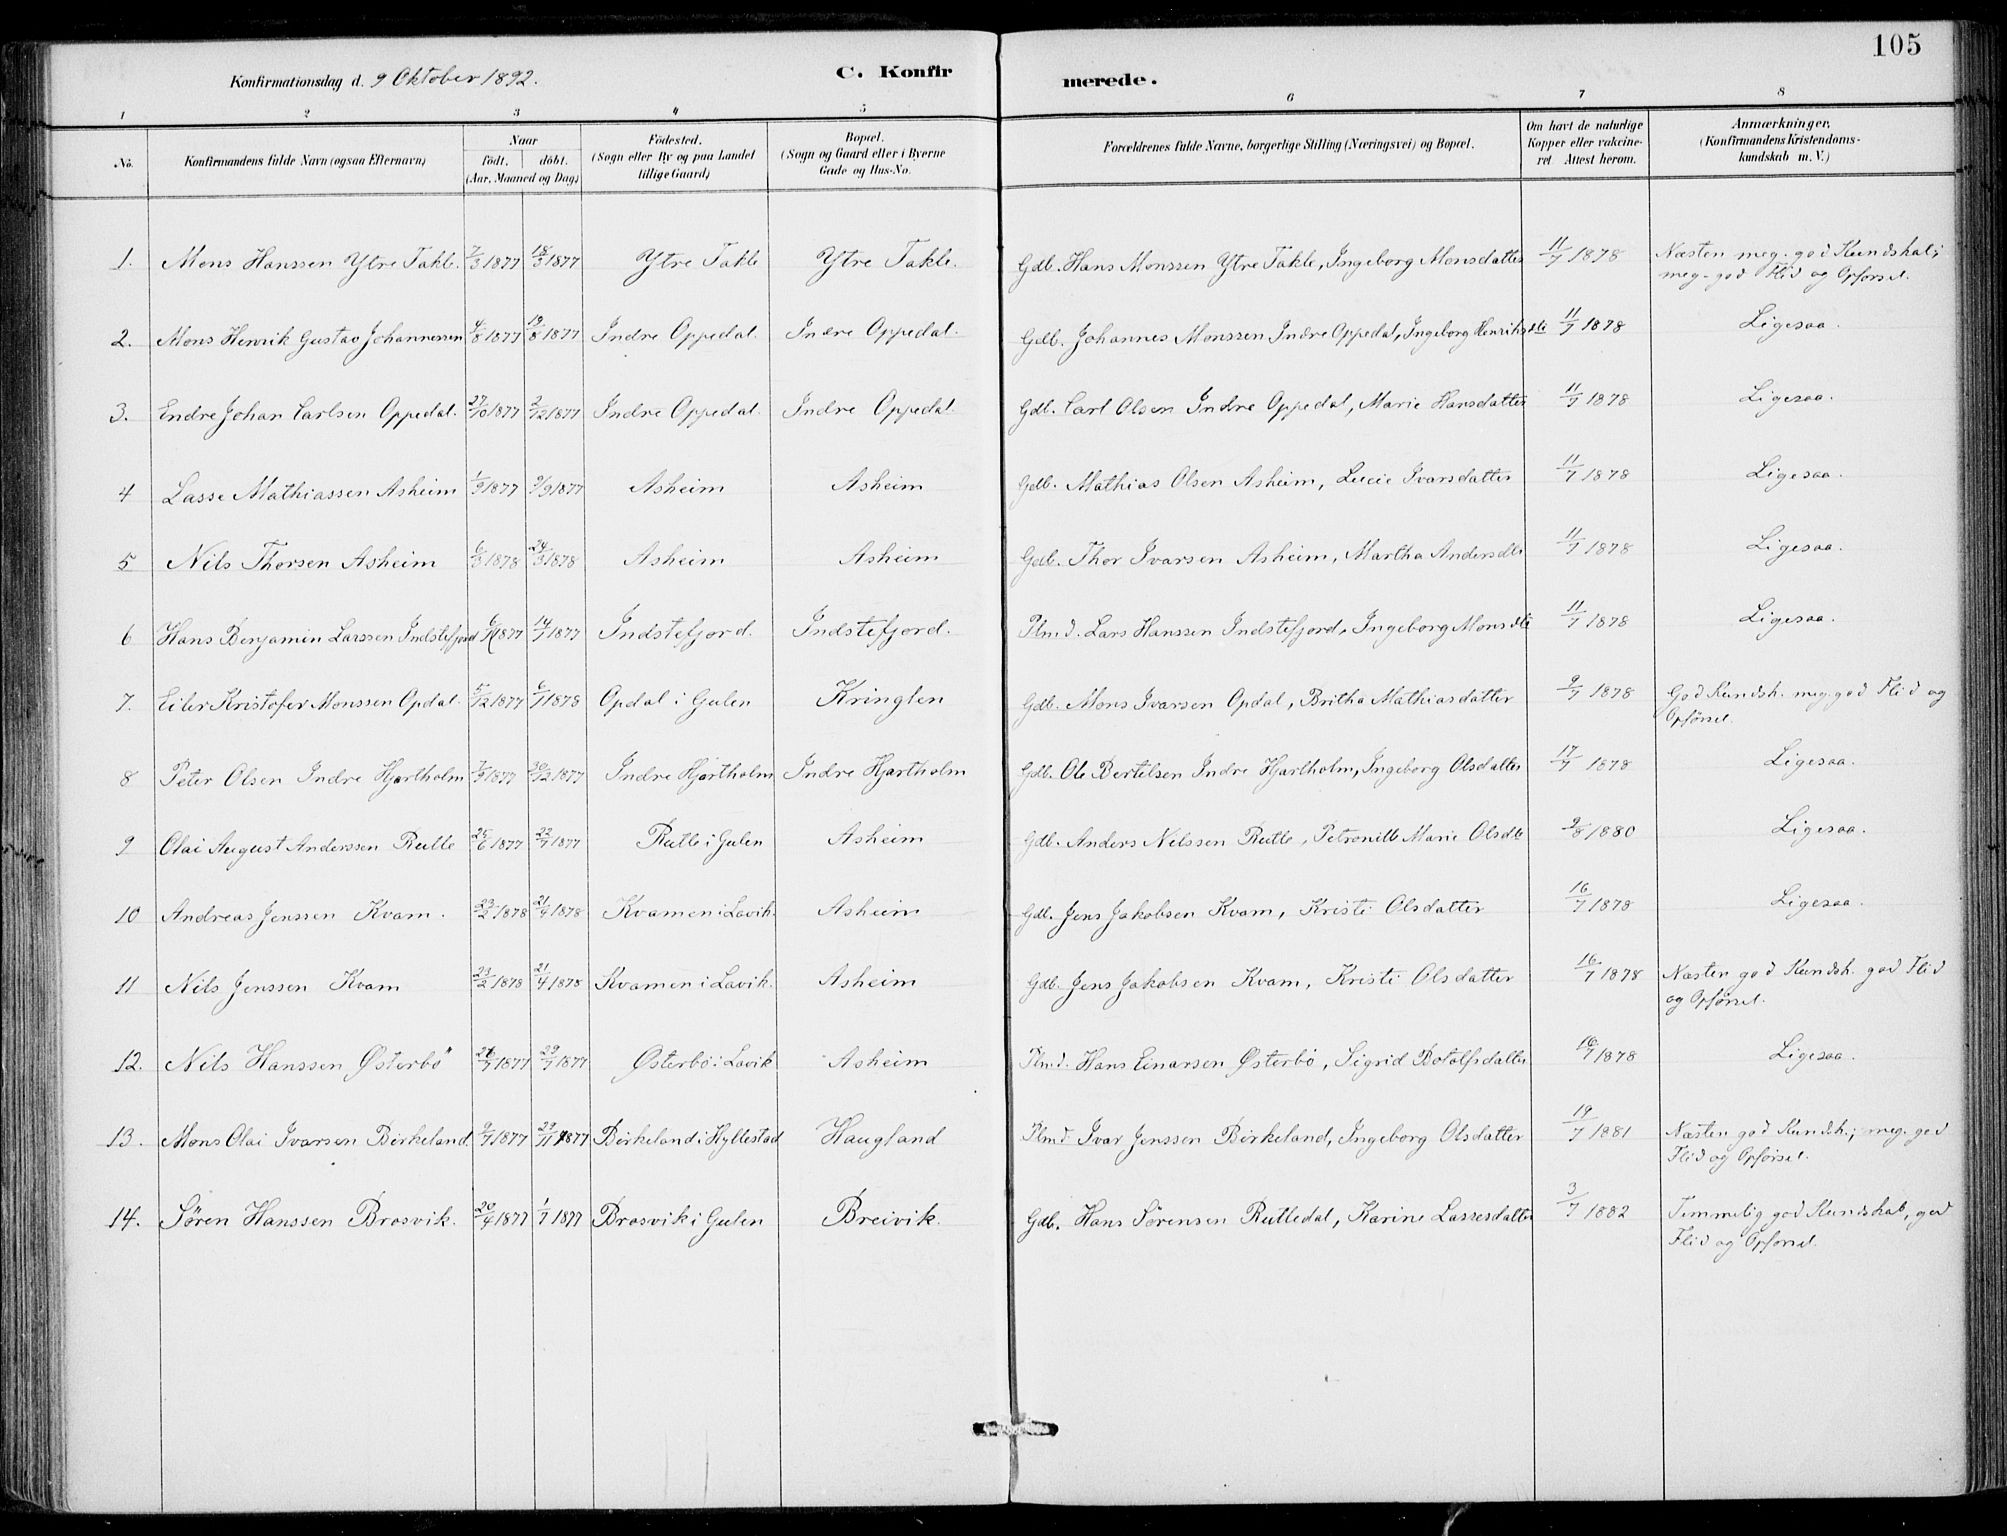 105
Konfirmationsdag d. 9 Oktober 1892.
C. Konfir
merede.
1 2 3 4 5 6 7 8
No.
Konfirmandens fulde Navn (ogsaa Efternavn)
Naar
födt. döbt.
(Aar, Maaned og Dag)
Födested.
(Sogn eller By og paa Landet
tillige Gaard)
Bopæl.
(Sogn og Gaard eller i Byerne
Gade og Hus-No.
Forældrenes fulde Navne, borgerlige Stilling (Næringsvei) og Bopæl.
Om havt de naturlige
Kopper eller vakcine-
ret Attest herom.
Anmærkninger,
(Konfirmandens Kristendoms-
kundskab m. V.)
1. Mons Hanssen Ytre Takle. 7/3 1877 18/3 1877 Ytre Takle Ytre Takle. Gdb. Hans Monssen Ytre Takle, Ingeborg Monsdatter 11/7 1878 Næsten meg. god Kundskab;
meg. god Flid og Opførsel.
2. Mons Henrik Gustav Johannessen 4/8 1877 19/8 1877 Indre Oppedal. Indre Oppedal. Gdb. Johannes Monssen Indre Oppedal, Ingeborg Henriksdtr 11/7 1878 Ligesaa.
3. Endre Johan Carlsen Oppedal. 27/10 1877 2/12 1877 Indre Oppedal. Indre Oppedal. Gdb. Carl Olsen Indre Oppedal, Marie Hansdatter 11/7 1878 Ligesaa.
4 Lasse Mathiassen Asheim 1/9 1877 9/9 1877 Asheim Asheim Gdb. Mathias Olsen Asheim, Lucie Ivarsdatter 11/7 1878 Ligesaa.
5 Nils Thorsen Asheim 6/3 1878 24/3 1878 Asheim Asheim Gdb. Thor Ivarsen Asheim, Martha Andersdtr 11/7 1878 Ligesaa.
6 Hans Benjamin Larssen Indstefjord 1877 14/7 1877 Indstefjord. Indstefjord. Plmd. Lars Hanssen Indstefjord, Ingeborg Monsdtr 11/7 1878 Ligesaa.
7. Eiler Kristofer Monssen Opdal. 5/12 1877 6/1 1878 Opdal i Gulen Kringlen Gdb. Mons Ivarsen Opdal, Britha Mathiasdatter 9/7 1878 God Kundsk. meg. god Flid og
Opførsel.
8 Peter Olsen Indre Hjartholm 1877 30/12 1877 Indre Hjartholm Indre Hjartholm Gdb. Ole Bertelsen Indre Hjartholm, Ingeborg Olsdatter 17/7 1878 Ligesaa.
9 Olai August Anderssen Rutle 25/6 1877 22/7 1877 Rutle i Gulen Asheim Gdb. Anders Nilssen Rutle, Petronille Marie Olsdtr 9/8 1880 Ligesaa.
10 Andreas Jenssen Kvam. 23/2 1878 21/4 1878 Kvamen i Lavik. Asheim Gdb. Jens Jakobsen Kvam, Kristi Olsdatter 16/7 1878 Ligesaa.
11 Nils Jenssen Kvam 23/2 1878 21/4 1878 Kvamen i Lavik. Asheim Gdb. Jens Jakobsen Kvam, Kristi Olsdatter 16/7 1878 Næsten god Kundsk. god Flid
og Opførsel.
12. Nils Hanssen Østerbö 1877 29/7 1877 Østerbö i Lavik Asheim Plmd. Hans Einarsen Østerbö, Sigrid Botolfsdatter 16/7 1878 Ligesaa.
13. Mons Olai Ivarsen Birkeland 9/7 1877 29/7 1877 Birkeland i Hyllestad Haugland Plmd Ivar Jenssen Birkeland, Ingeborg Olsdatter 19/7 1881 Næsten god Kundsk.; meg. god
Flid og Opførsel.
14. Sören Hanssen Brosvik. 20/4 1877 1/7 1877 Brosvik i Gulen Breivik. Gdb. Hans Sörensen Rutledal, Karine Lassesdatter 3/7 1882 Temmelig god Kundskab, god
Flid og Opførsel.